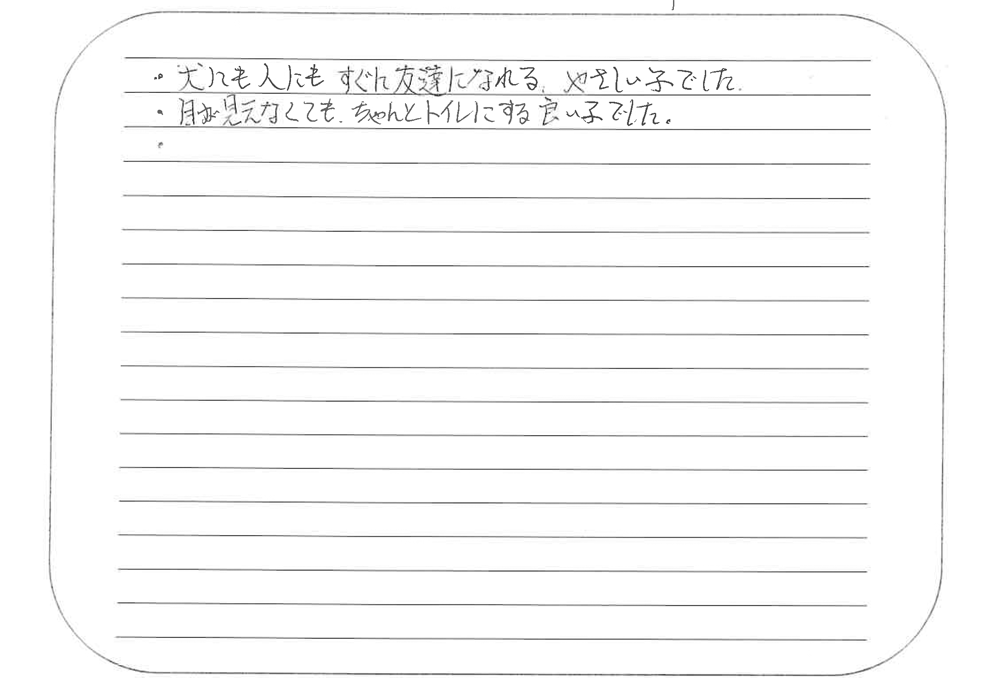 ・犬にも人にもすぐに友達になれる、やさしい子でした。
・目が見えなくても、ちゃんとトイレにする良い子でした。
・